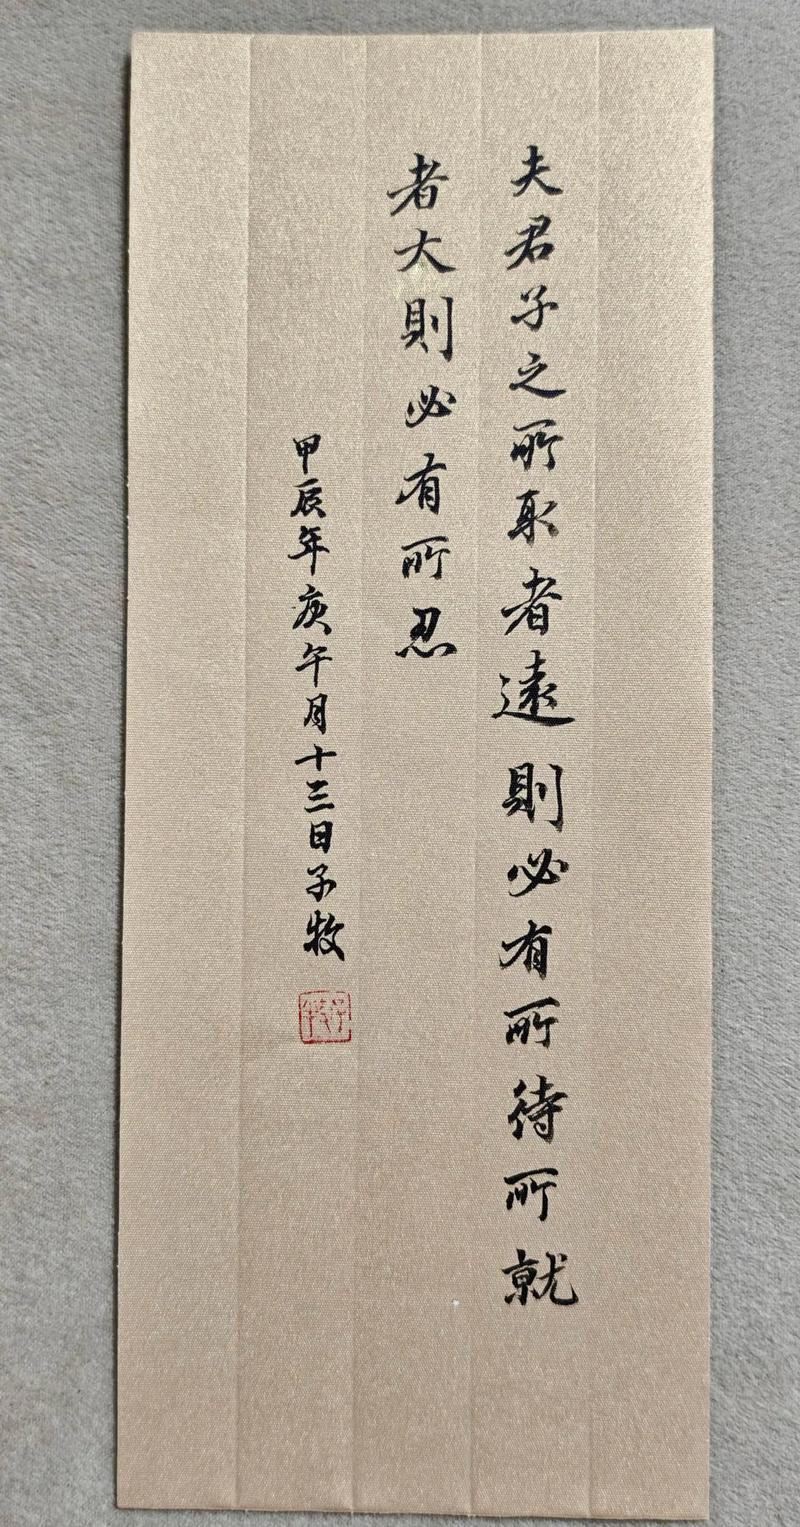 夫君子之所取者遠則必有所待所就
者大則必有所忍
甲辰年庚午月十三日子牧
子牧